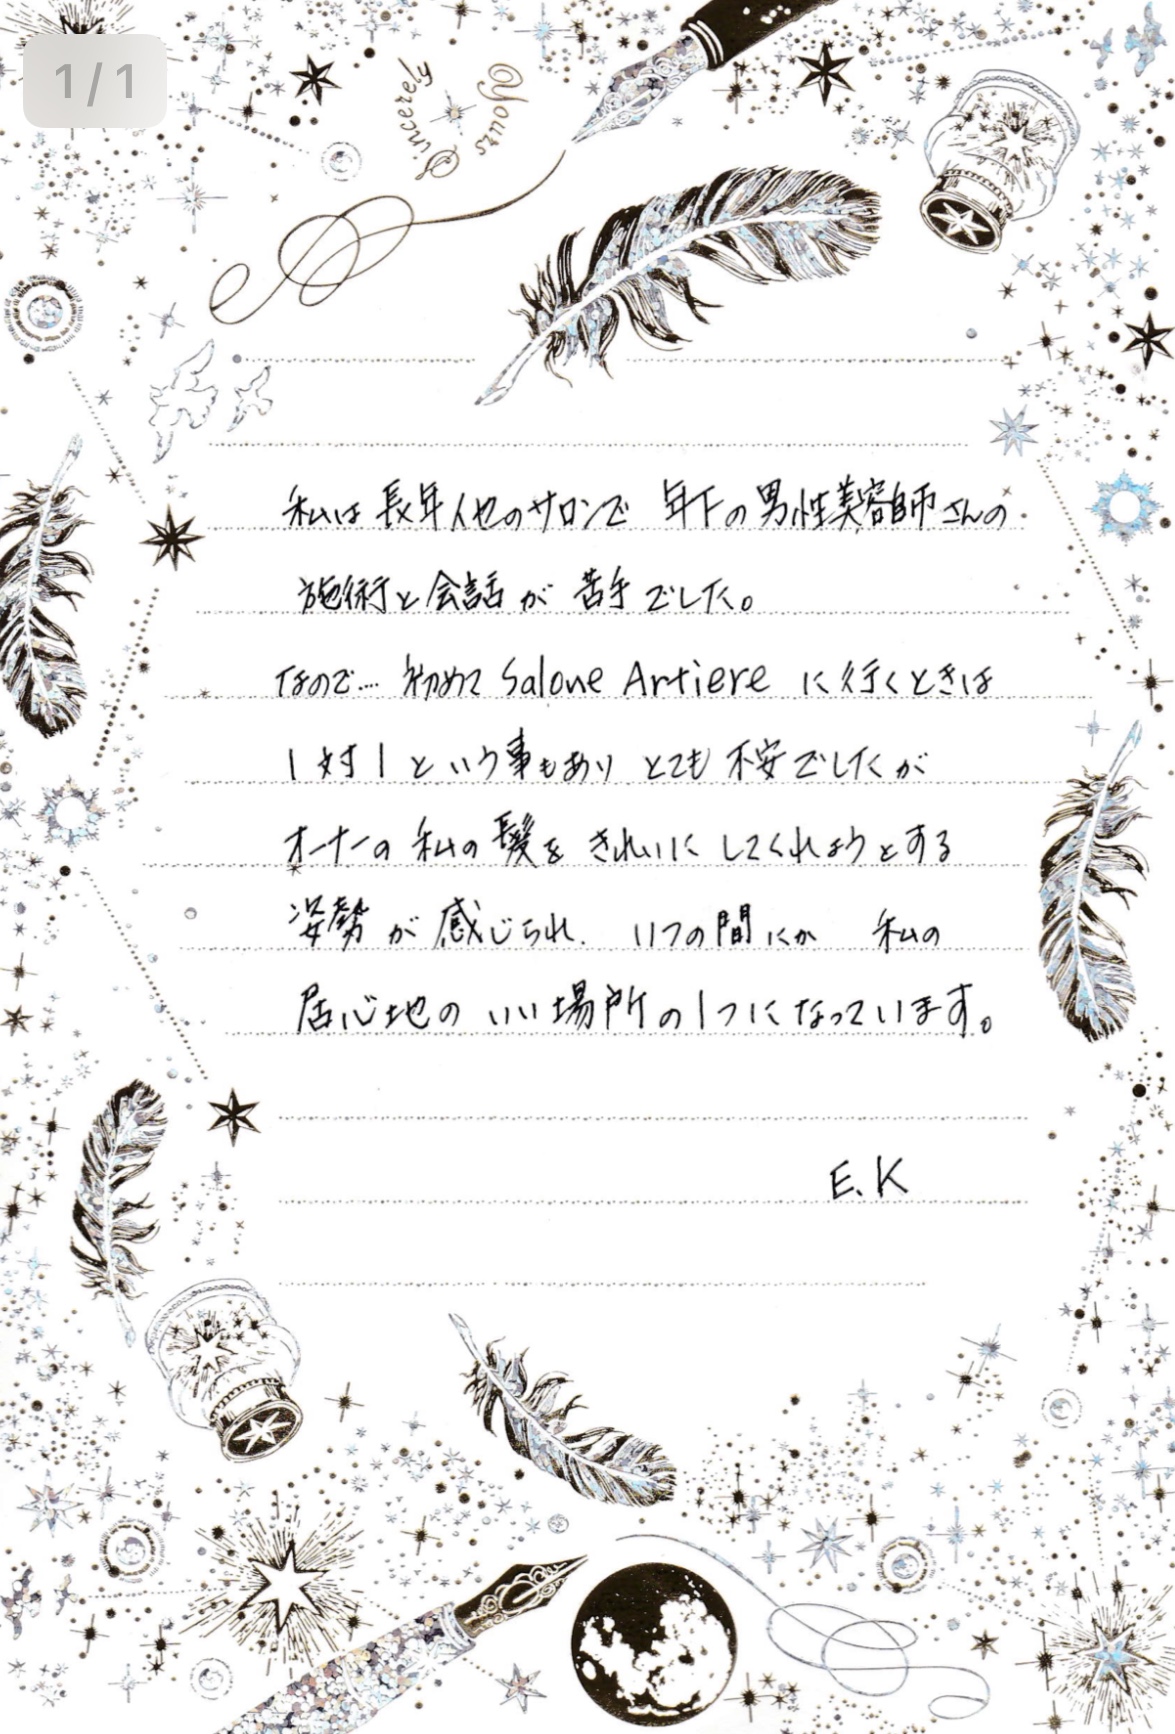 1/1
Yours
Sincerely
私は長年他のサロンで 年下の男性美容師さんの
施術と会話が苦手でした。
なので… 初めて Salone Artiereに行くときは
1対1という事もあり とても不安でしたが
オーナーの私の髪をきれいにしてくれようとする
姿勢が感じられ. いつの間にか 私の
居心地のいい場所の1つになっています。
E.K